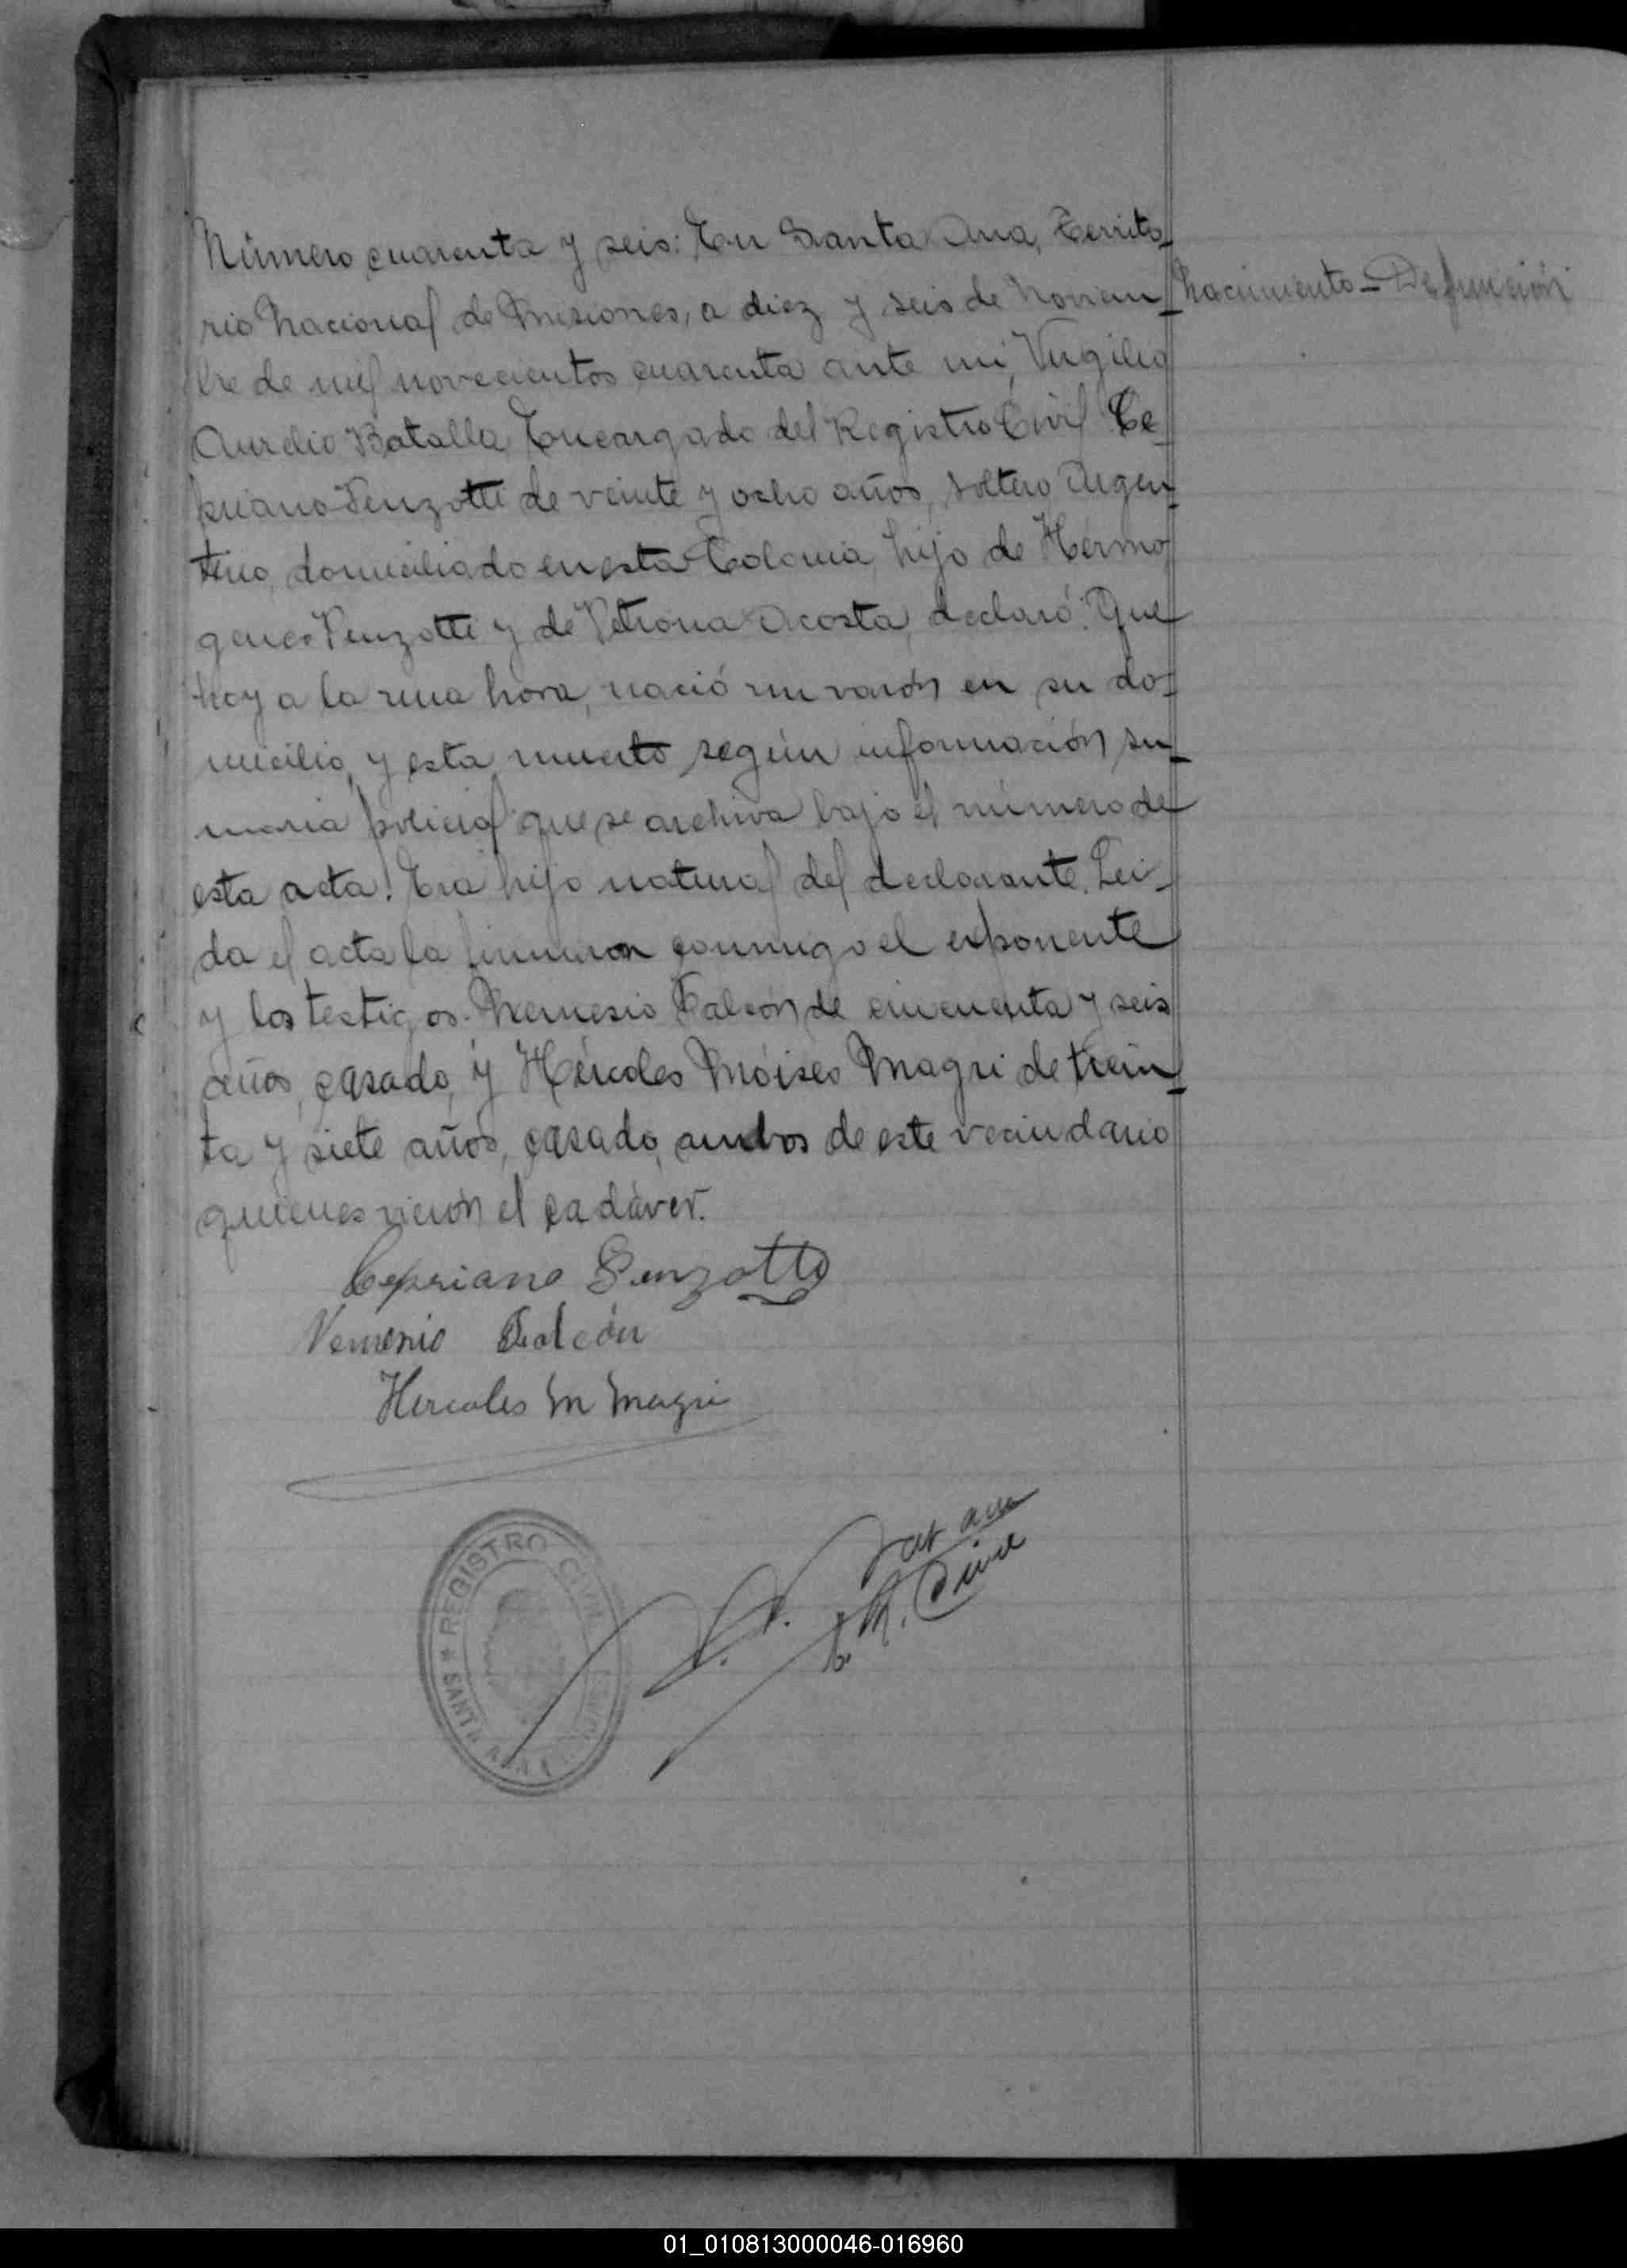 Número cuarenta y seis: En Santa Ana, Territo-
rio Nacional de Misiones, a diez y seis de Noviem-
bre de mil novecientos cuarenta ante mi, Virgilio
Aurelio Batalla, Encargado del Registro Civil Ce-
priano Penzotti de veinte y ocho años, soltero Argen-
tino, domiciliado en esta Colonia, hijo de Hermo
genes Penzotti y de Petrona Acosta, declaró: Que
hoy a la una hora, nació un varón en su do-
micilio, y esta muerto según información su-
maria policial que se archiva bajo el número de
esta acta. Era hijo natural del declarante. Lei-
da el acta la firmaron conmigo el exponente
y los testigos. Nemesio Falcón de cincuenta y seis
años, casado, y Hércoles Móises Magri de trein-
ta y siete años, casado, ambos de este vecindario
quienes vieron el cadáver.
Nacimiento = Defunción
Cepriano Penzotti
Nemesio Falcón
Hercoles M Magri
REGISTRO CIVIL
SANTA ANA
01_010813000046-016960